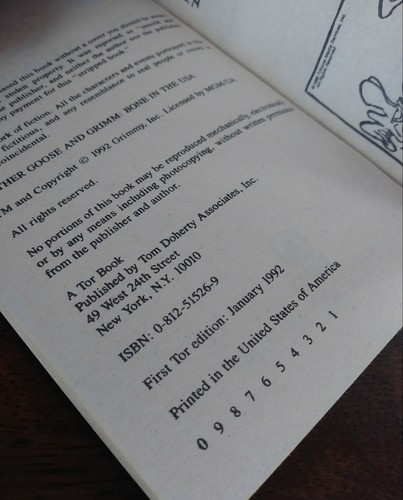 this book without a cover you should be
property. It was reported as
publisher, and neither the author nor the publisher
payment for this "stripped book."
work of fiction. All the characters and events portrayed in
fictitious, and any resemblance to real people or
coincidental.
THER GOOSE AND GRIMM: BONE IN THE USA
TM and Copyright © 1992 Grimmy, Inc. Licensed by MGM/UA.
All rights reserved.
No portions of this book may be reproduced mechanically, electronically
or by any means including photocopying, without written permission
from the publisher and author.
A Tor Book
Published by Tom Doherty Associates, Inc.
49 West 24th Street
New York, N.Y. 10010
ISBN: 0-812-51526-9
First Tor edition: January 1992
Printed in the United States of America
0 9 8 7 6 5 4 3 2 1